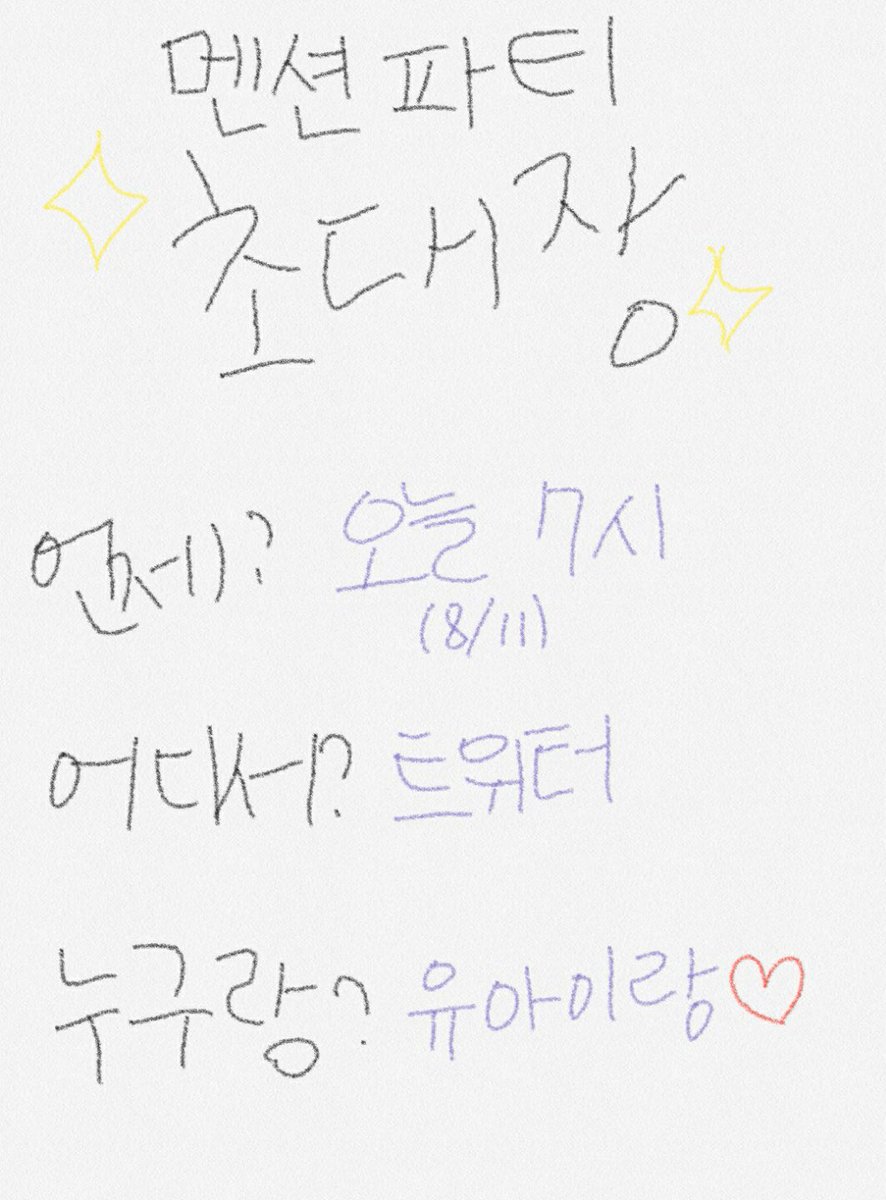 멘션파티
초대장
언제? 오늘 7시
(8/11)
어디서? 트위터
누구랑? 유아이랑♡